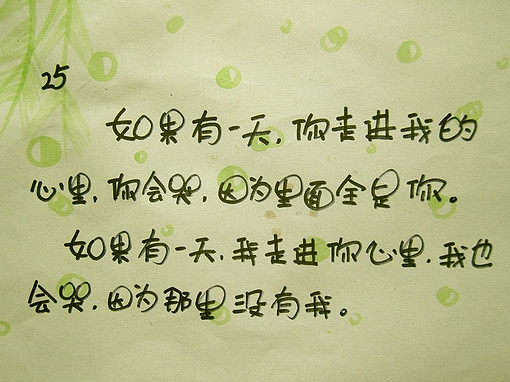 25
如果有一天，你走进我的
心里，你会哭，因为里面全是你。
如果有一天，我走进你心里，我也
会哭，因为那里没有我。